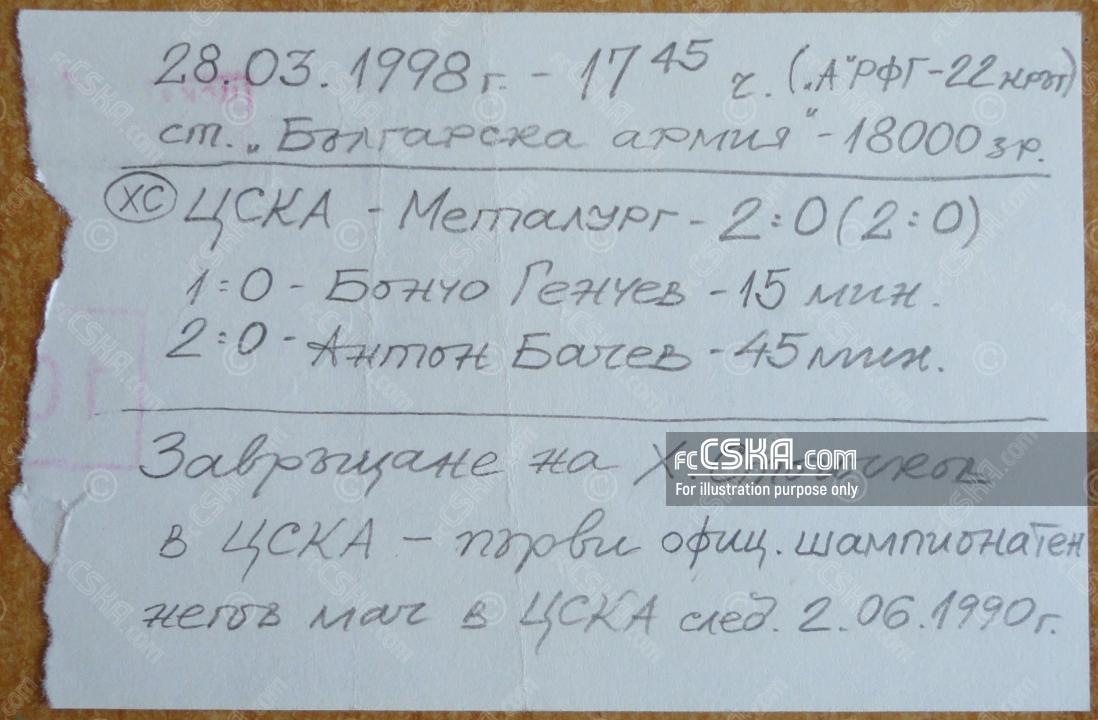 28.03.1998 г. - 17 45 ч. („А“ РФГ - 22 кръг)
ст. „Българска армия“ - 18000 зр.
ХС ЦСКА - Металург - 2:0 (2:0)
1:0 - Бончо Генчев - 15 мин.
2:0 - Антон Бачев - 45 мин.
Завръщане на Х.
fcCSKA.com
For illustration purpose only
в ЦСКА - първи офиц. шампионатен
негов мач в ЦСКА след 2.06.1990 г.